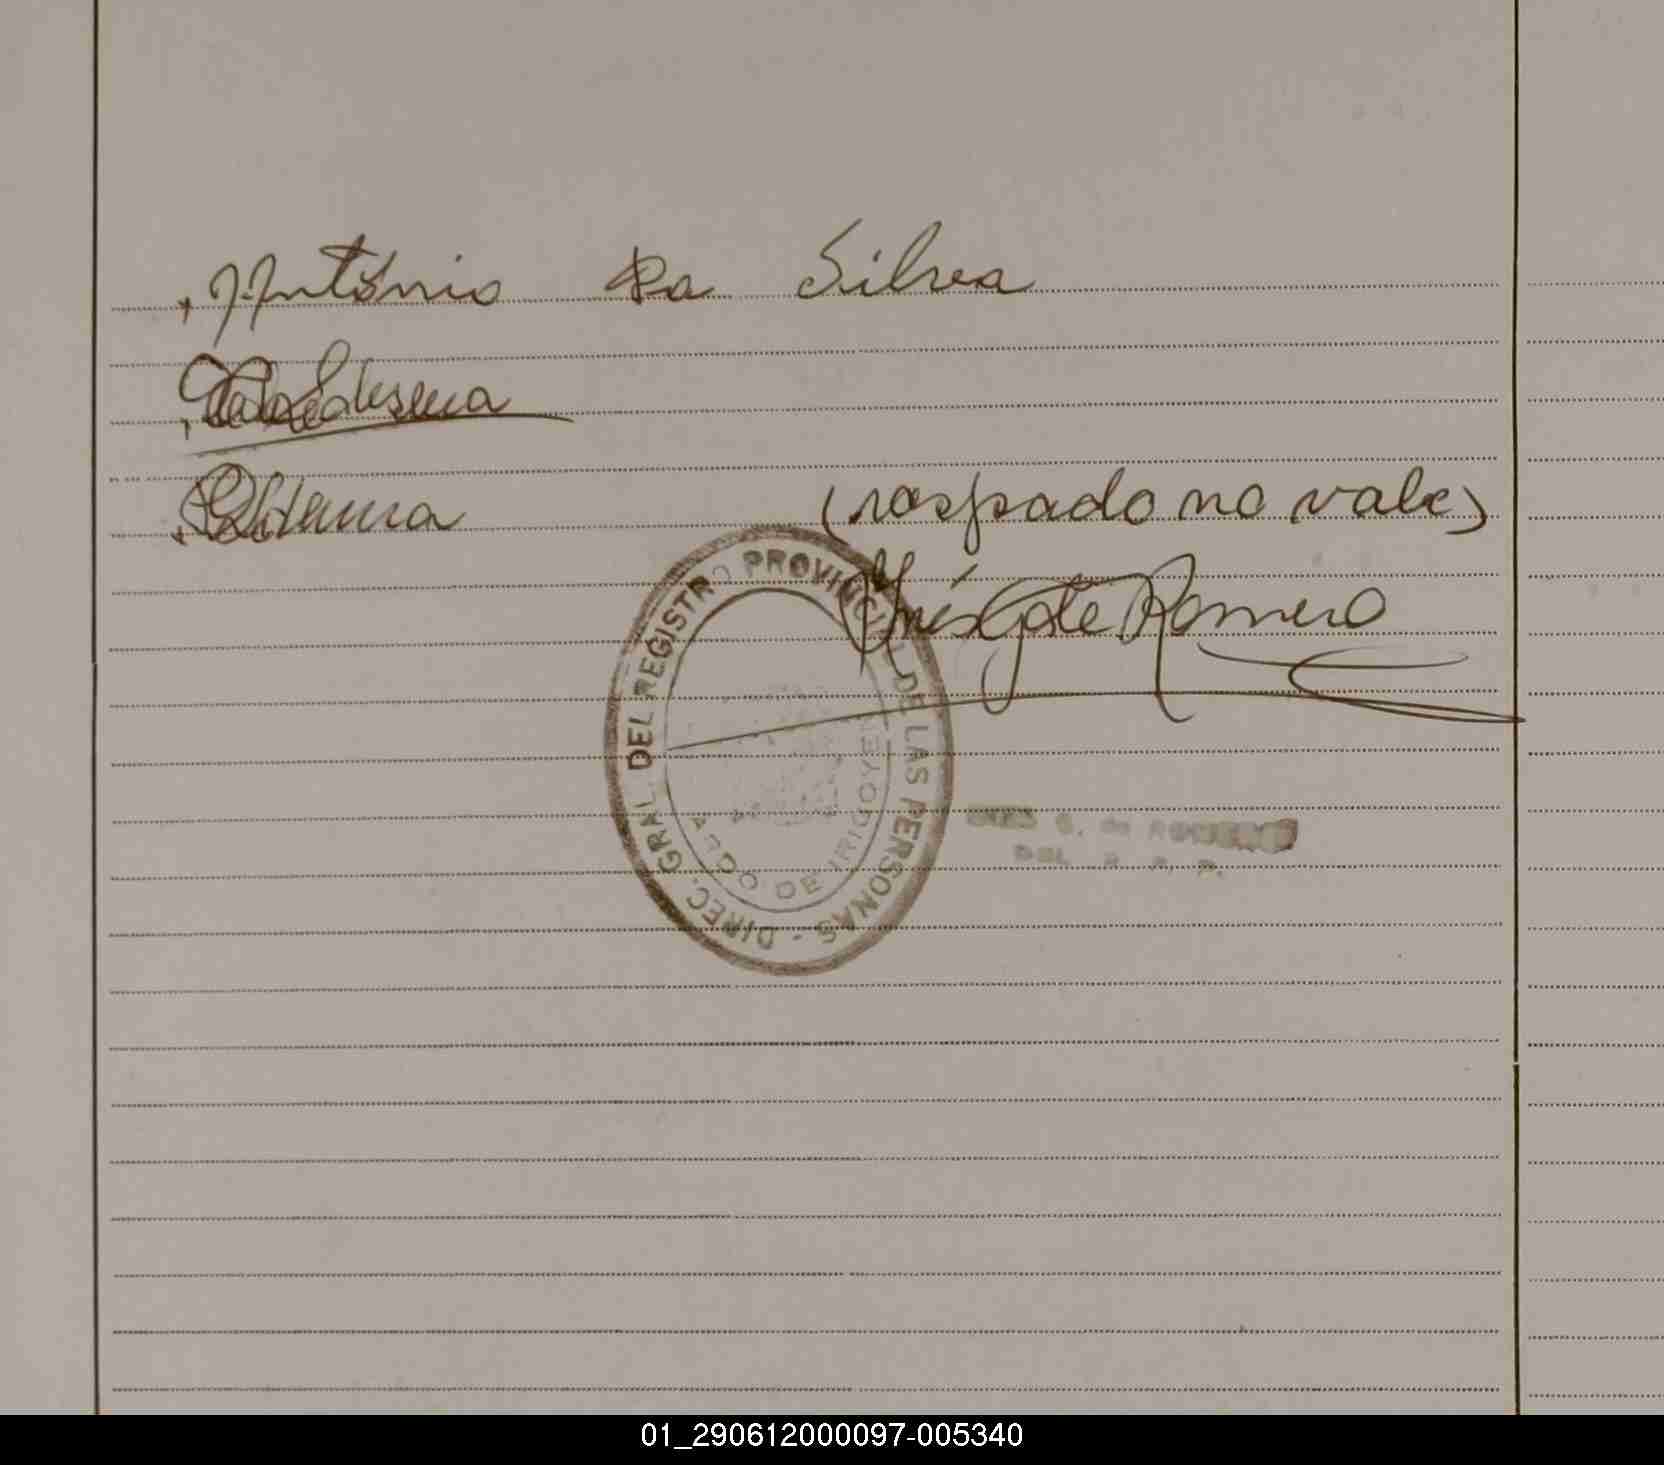 António Da Silva
Ledesma
Ledesma
(raspado no vale)
Inés G de Romero
DIREC. GRAL. DEL REGISTRO PROVINCIAL DE LAS PERSONAS -
DE IRIGOYEN
INES G. de ROMERO
DEL. R. P. P.
01_290612000097-005340